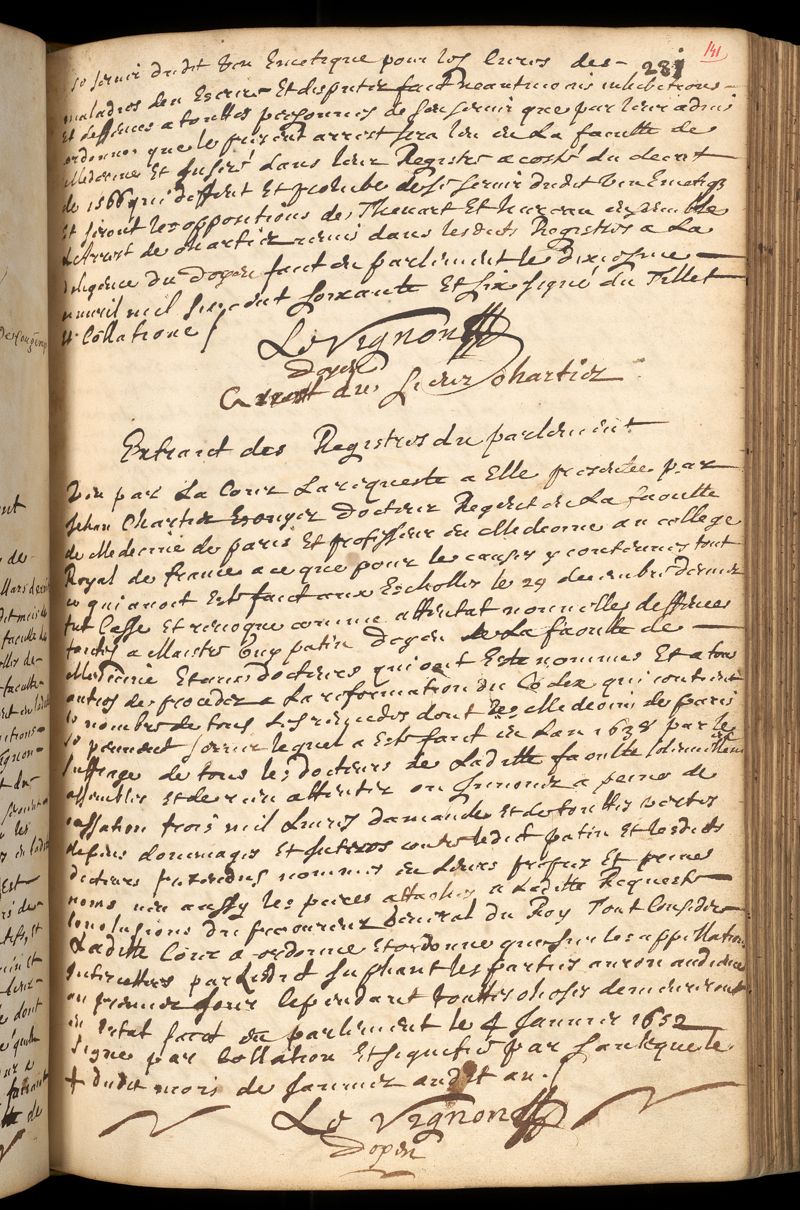 141
281
se servir dudit vin Emetique pour les cures des
malades d'en Escrire Et disputer faict neantmoins inhibitions
Et deffences a touttes personnes de s'en servir que par leur advis
ordonne que le present arrest sera leu en La faculté de
Medecine Et inseré dans leur Registre a costé du decret
de 1566 qui deffent Et prohibe de se servir dudit vin Emetiq
Et seront les oppositions de Thevart Et hureau ensemble
L'Arrest de chartier remis dans lesdicts Registres a La
diligence du Doyen faict en parlement le dixiesme
en avril mil six cent soixante Et six signé du Tillet
Et Collationé
Le Vignon
Doyen
Arrest du sieur Chartier
Extraict des Registres du parlement
Veu par La Cour La requeste a Elle presentée par
Jehan Chartier Escuyer Docteur Regent en La faculté
de Medecine de paris Et professeur en Medecine au college
Royal de france a ce que pour les causes y contenues tout
ce qui avoit Esté faict aux Escholles le 29 decembre dernier
fut Cassé Et revoqué comme attentat nouvelles deffences
faictes a Maistre Guy patin Doyen de La faculté de
Medecine Et aux docteurs qui ont Esté nommes Et a tous
autres de proceder a La reformation du Codex qui contient
le nombre de tous Les remedes dont les Medecins de paris
se peuvent servir lequel a Esté faict en Lan 1638 par le
suffrage de tous les Docteurs de Laditte faculté
assembles Et de rien attenter ou innover a peine de
cassation trois mil Livres damande Et de touttes pertes
despens dommages Et interests contre ledit patin Et lesdits
docteurs susdits nommes en Leurs propres Et prives
noms veu aussy les pieces attachees a Laditte Requeste
Conclusions du procureur General du Roy Tout Consideré
Laditte Cour a ordonné Et ordonne que sur les appellations
interjettees par Ledit supliant les parties auront audience
au premier jour cependant touttes choses demeureront
en Estat faict en parlement le 4 Janvier 1652
Signe par Collation Et signifié par
+ dudit mois de Janvier audit an.
Le Vignon
Doyen